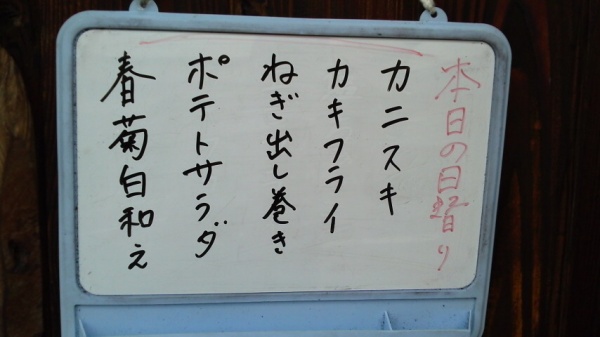 本日の日替り
カニスキ
カキフライ
ねぎ出し巻き
ポテトサラダ
春菊白和え